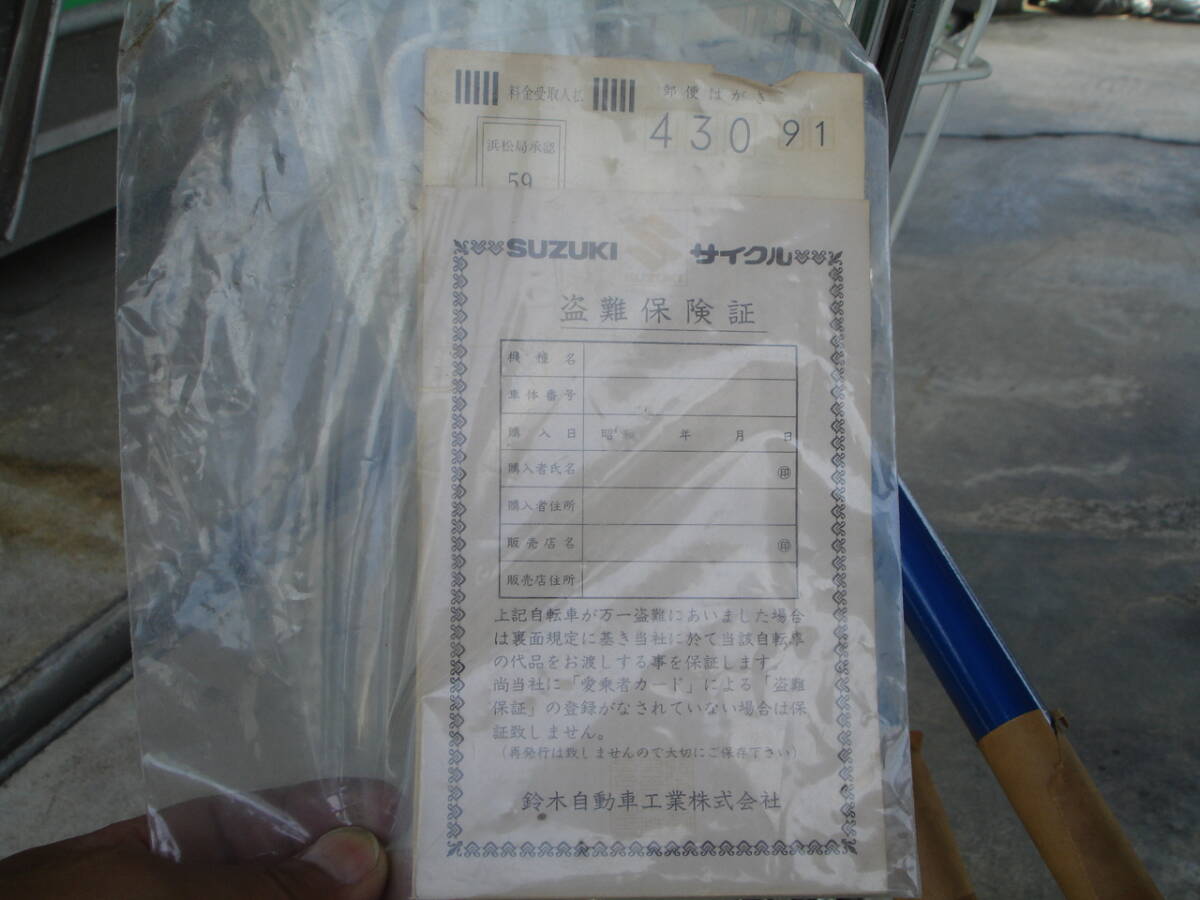 料金受取人払
郵便はがき
430 91
浜松局承認
59
SUZUKI サイクル
盗難保険証
機種名
車体番号
購入日 昭和 年 月 日
購入者氏名 印
購入者住所
販売店名 印
販売店住所
上記自転車が万一盗難にあいました場合
は裏面規定に基き当社に於て当該自転車
の代品をお渡しする事を保証します。
尚当社に「愛乗者カード」による「盗難
保証」の登録がなされていない場合は保
証致しません。
(再発行は致しませんので大切にご保存下さい)
鈴木自動車工業株式会社